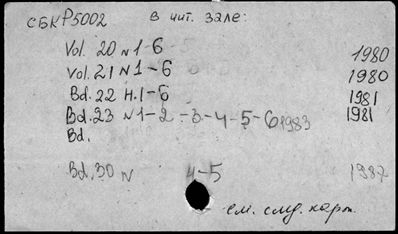 СБКР5002 в чит. зале:
Vol. 20 N 1-6 1980
Vol. 21 N 1-6 1980
Bd. 22 H. 1-6 1981
Bd. 23 N 1-2-3-4-5-6 1983 1981
Bd.
Bd. 30 N 4-5 1987
см. след. карт.